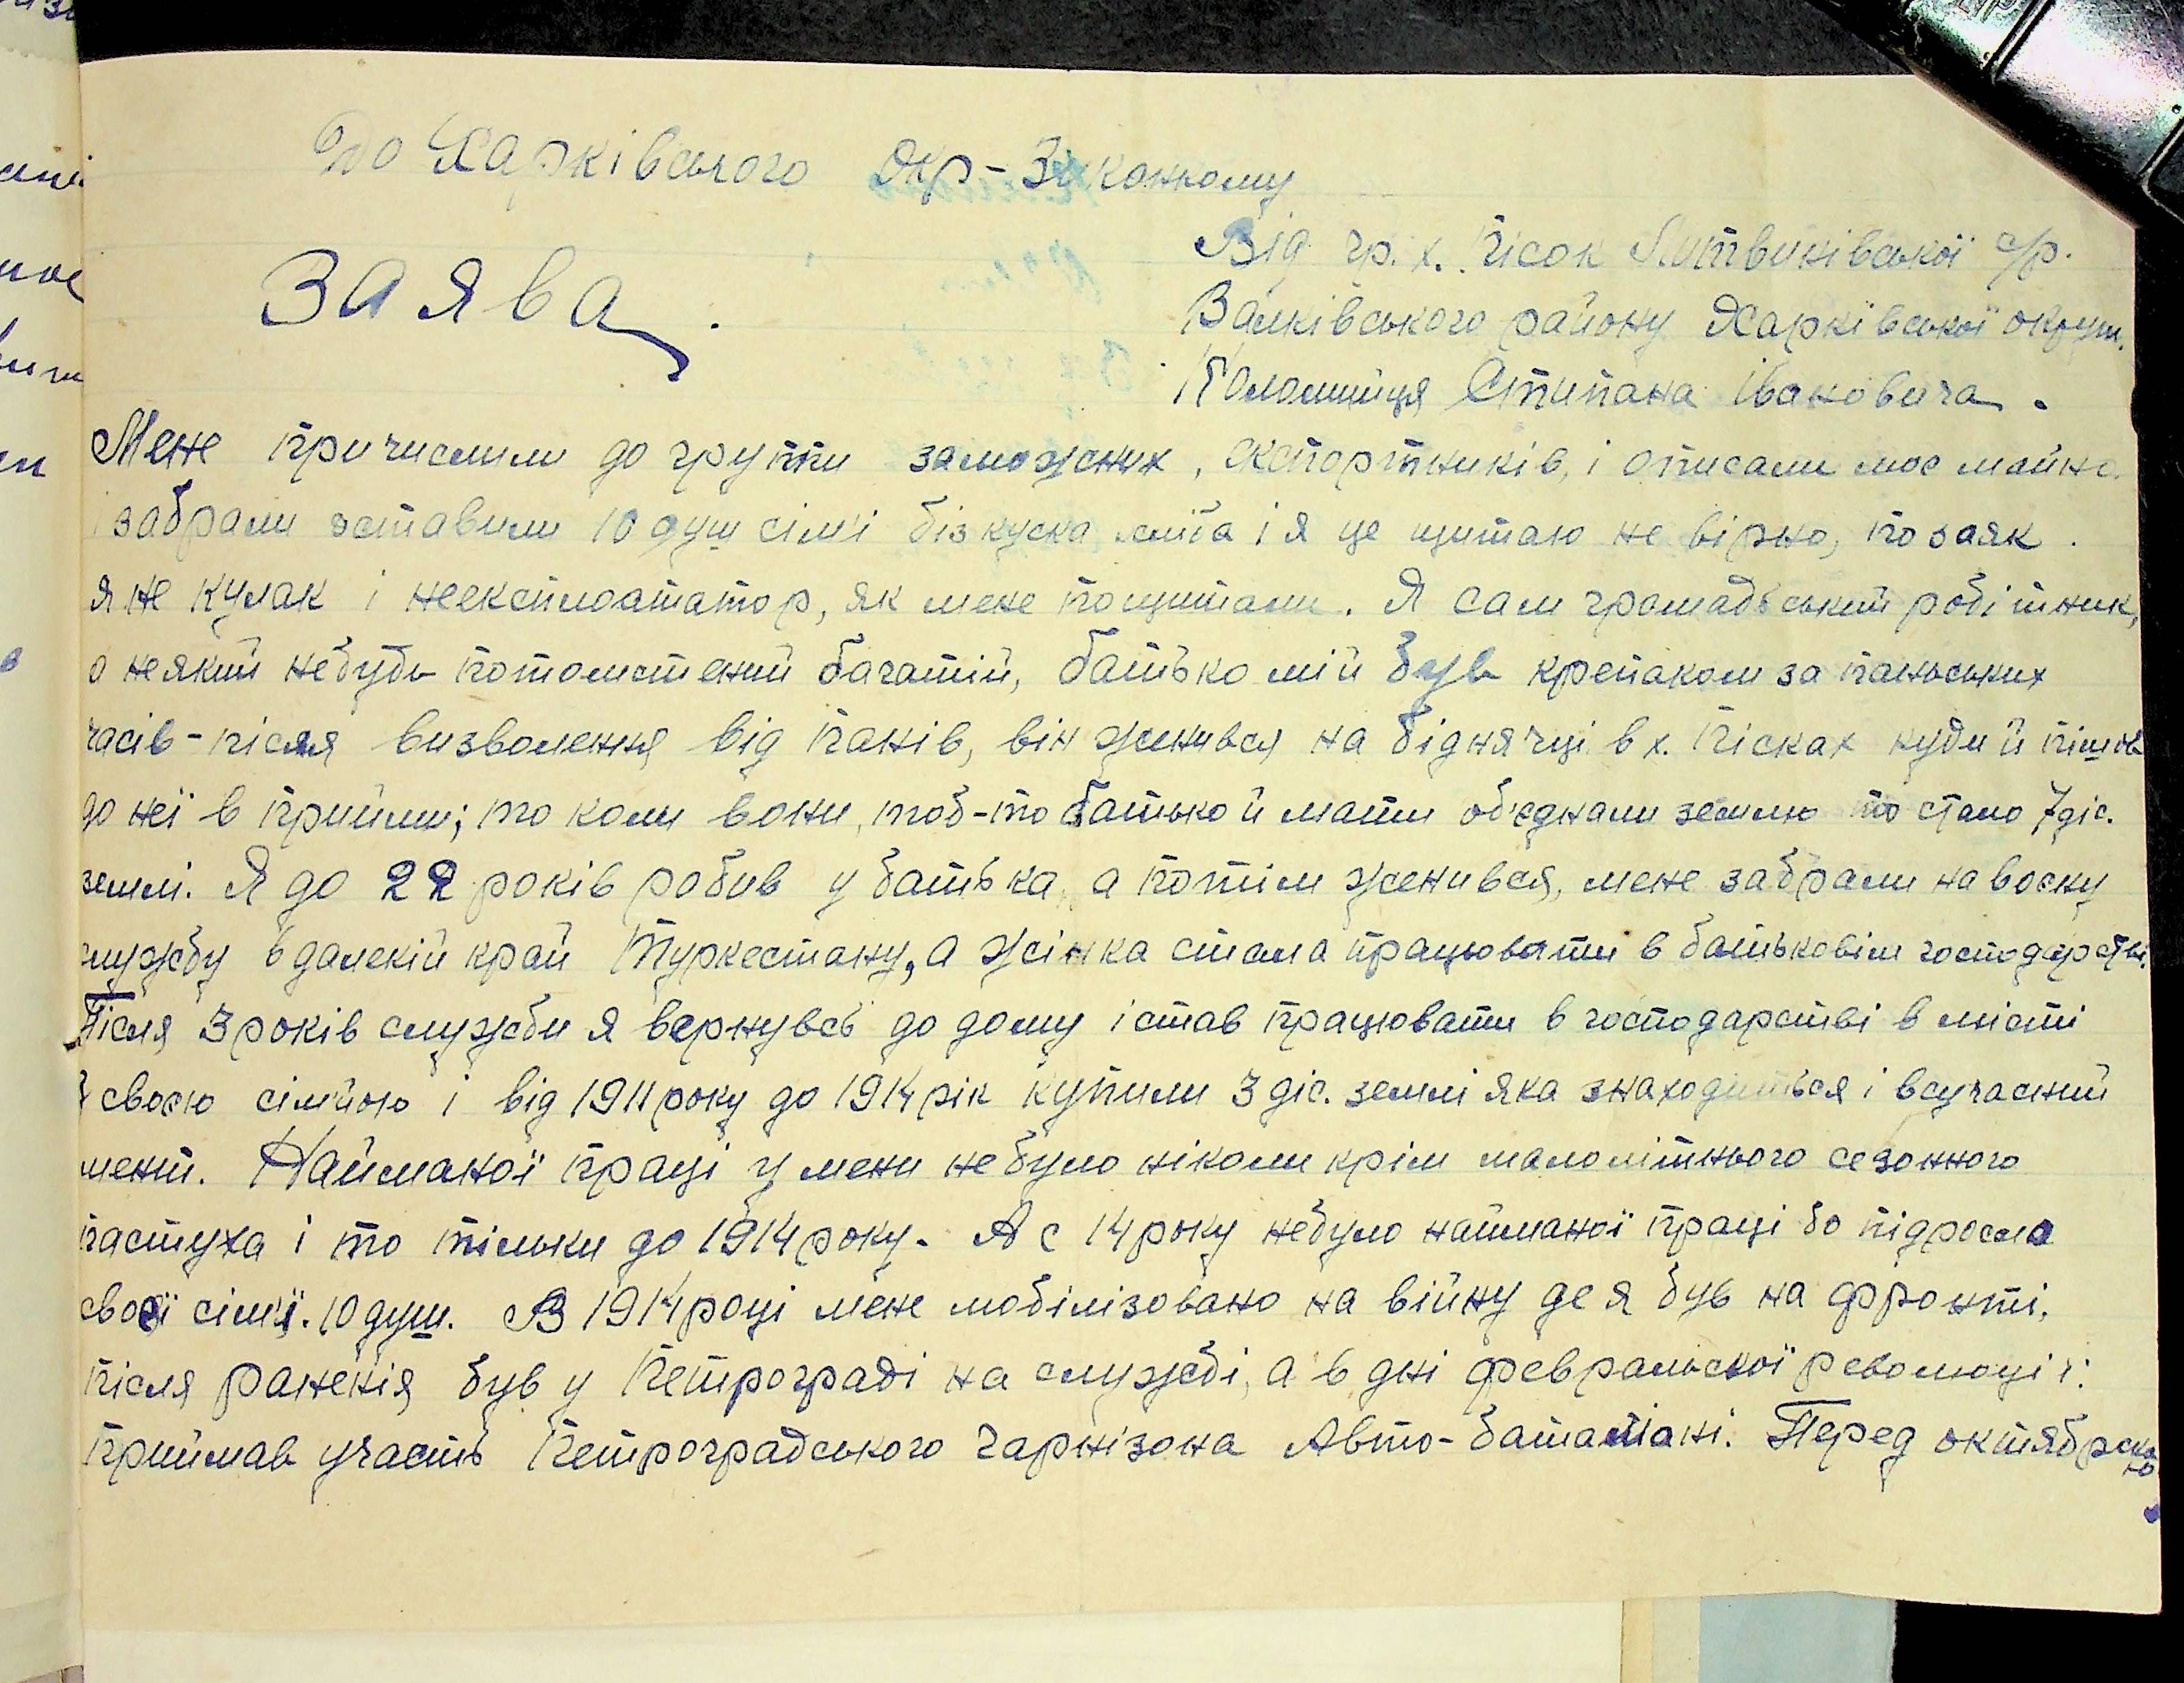 До Харківського Окр-Виконкому
Від гр. х. Пісок Литвиківської с/р.
ЗАЯВА.
Валківського району Харківської округи.
Коломийця Стипана Івановича.
Мене причислили до групи заможних, експортників, і описали моє майно
забрали зставили 10 душ сімі біз куска хліба і я це щитаю не вірно, позаяк.
я не кулак і неексплоататор, як мене пощитали. Я сам громадьський робітник,
а не який небудь потомствений багатій, батько мій був крепаком за паньських
часів-після визволення від панів, він женився на біднячці в х. Пісках куди й пішов
до неї в прийми; то коли вони, тоб-то батько й мати обєднали землю то стало 7 діс.
землі. Я до 22 років робив у батька, а потім женився, мене забрали на воєну
службу в далекій край Туркестану, а жінка стала працювати в батьковім господарстві.
Після 3 років служби я вернувсь до дому і став працювати в господарстві в місті
з своєю сімйою і від 1911 року до 1914 рік купили 3 діс. землі яка знаходиться і в сучасний
мент. Найманої праці у мени не було ніколи крім малолітнього сезонного
пастуха і то тільки до 1914 року. А с 14 року небуло найманої праці бо підросла
своєї сімї. 10 душ. В 1914 році мене мобілізовано на війну де я був на фронті,
після раненія був у Петрограді на службі, а в дні февральської революції:
приймав участь Петроградського гарнізона Авто-баталіоні. Перед октябрською